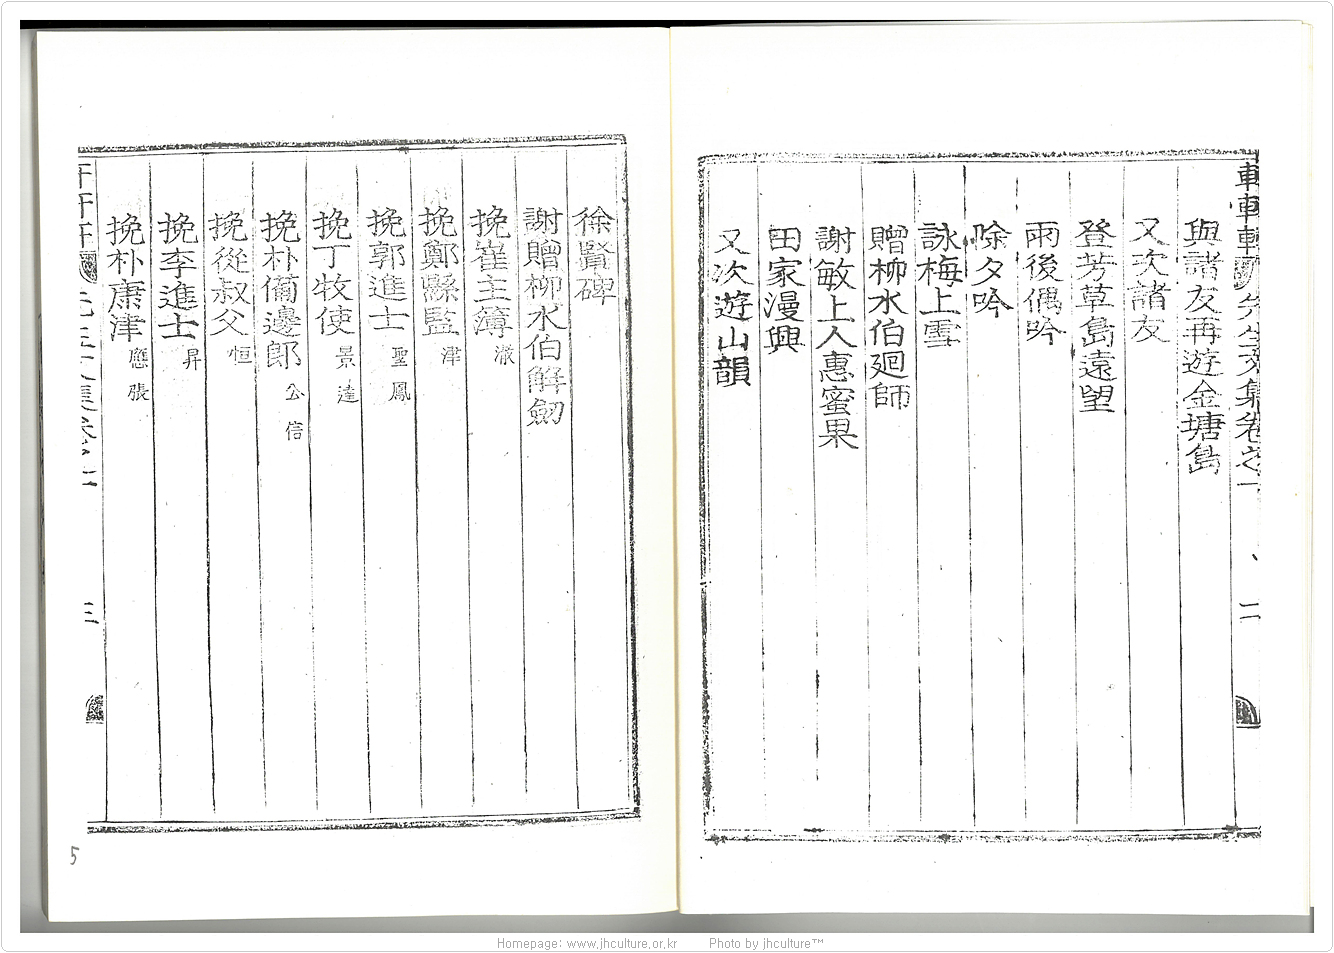 與諸友再遊金塘島
又次諸友
登芳草島遠望
雨後偶吟
除夕吟
詠梅上雪
贈柳水伯廻師
謝敏上人惠蜜果
田家漫興
又次遊山韻
二
徐賢碑
謝贈柳水伯解劒
挽崔主簿
挽鄭縣監 津
挽郭進士 聖鳳
挽丁牧使 景達
挽朴備邊郎 公信
挽從叔父 恒
挽李進士 昇
挽朴康津 應張
三
5
Homepage: www.jhculture.or.kr Photo by jhculture™